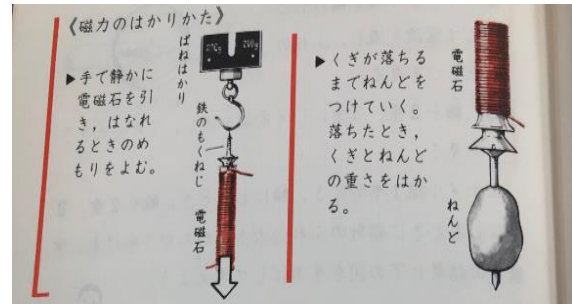 《磁力のはかりかた》
▶手で静かに
電磁石を引
き，はなれ
るときのめ
もりをよむ。
ばねはかり
鉄のもくねじ
電磁石
▶くぎが落ちる
までねんどを
つけていく。
落ちたとき，
くぎとねんど
の重さをはか
る。
電磁石
ねんど